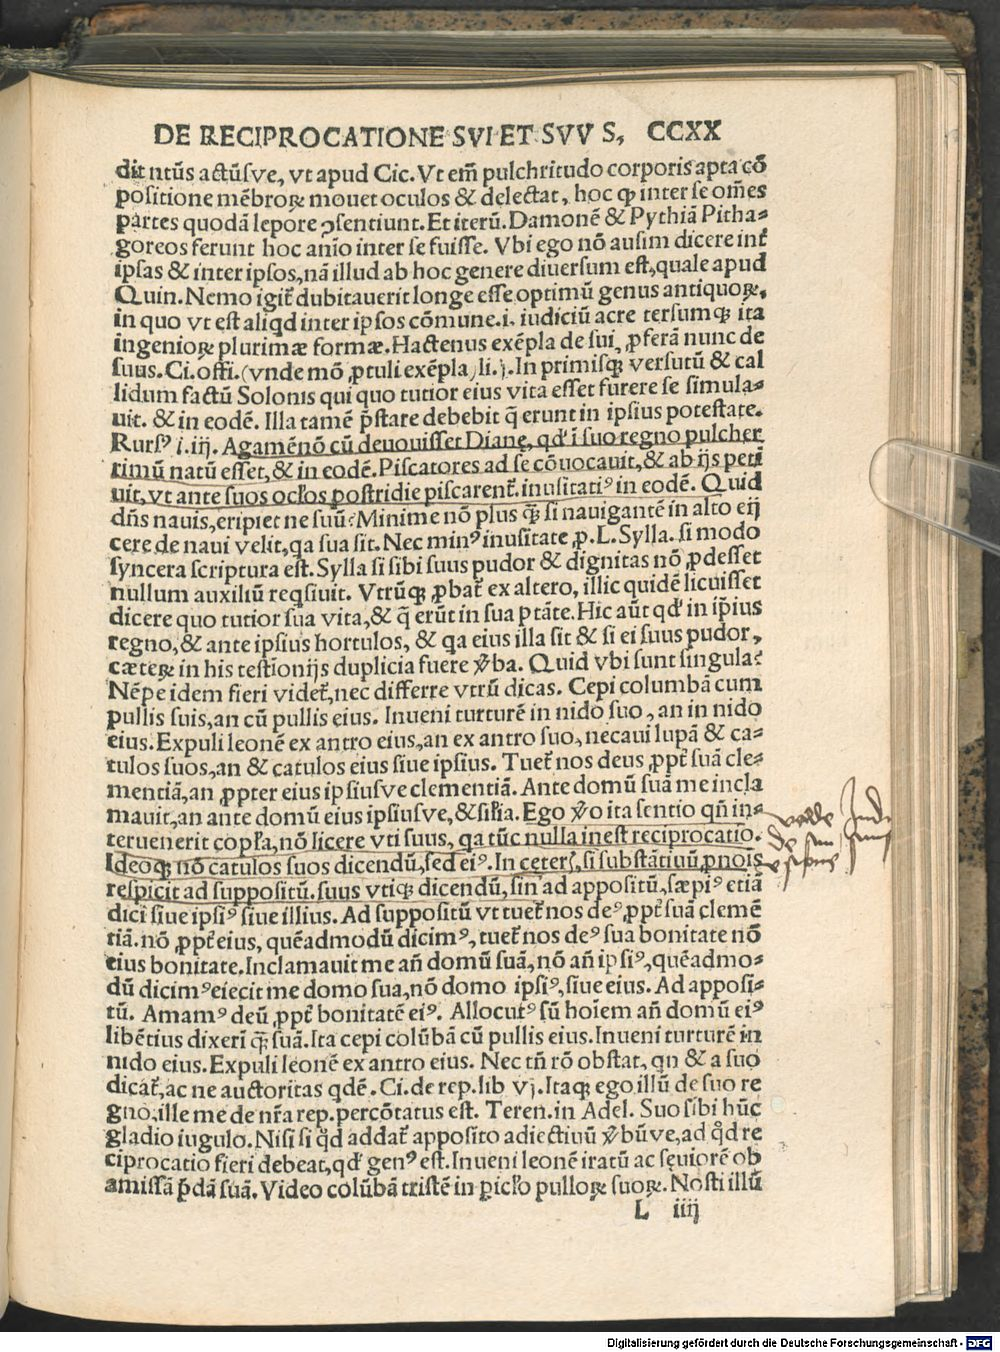 DE RECIPROCATIONE SVI ET SVV S, CCXX
dit ntũs actũsve, vt apud Cic. Vt em̃ pulchritudo corporis apta cõ
positione mẽbroꝝ mouet oculos & delectat, hoc ꝙ inter se om̃es
partes quodã lepore ↄsentiunt. Et iterũ. Damonẽ & Pythiã Pitha⸗
goreos ferunt hoc anĩo inter se fuisse. Vbi ego nõ ausim dicere int̃
ipsas & inter ipsos, nã illud ab hoc genere diuersum est, quale apud
Quin. Nemo igit̃ dubitauerit longe esse optimũ genus antiquoꝝ,
in quo vt est aliqd inter ipsos cõmune.i. iudiciũ acre tersumqꝫ ita
ingenioꝝ plurimæ formæ. Hactenus exẽpla de sui, ꝓferã nunc de
suus. Ci. offi. (vnde mõ ꝓtuli exẽpla) li. j. In primisqꝫ versutũ & cal
lidum factũ Solonis qui quo tutior eius vita esset furere se simula⸗
uit. & in eodẽ. Illa tamẽ p̃stare debebit q̃ erunt in ipsius potestate.
Rursꝰ i. iij. Agamẽnõ cũ deuouisset Dianę, qd' ĩ suo regno pulcher
rimũ natũ esset, & in eodẽ. Piscatores ad se cõuocauit, & ab ijs peti
uit, vt ante suos ocl'os postridie piscarent̃. inusitatiꝰ in eodẽ. Quid
dñs nauis, eripiet ne suũ? Minime nõ plus q̃ꝫ si nauigantẽ in alto eij
cere de naui velit, qa sua sit. Nec minꝰ inusitate ꝓ. L. Sylla. si modo
syncera scriptura est. Sylla si sibi suus pudor & dignitas nõ ꝓdesset
nullum auxiliũ reqsiuit. Vtrũqꝫ ꝓbat̃ ex altero, illic quidẽ licuisset
dicere quo tutior sua vita, & q̃ erũt in sua ptãte. Hic aũt qd' in ip̃ius
regno, & ante ipsius hortulos, & qa eius illa sit & si ei suus pudor,
cæteꝝ in his testionijs duplicia fuere v̾ba. Quid vbi sunt singula?
Nẽpe idem fieri videt̃, nec differre vtrũ dicas. Cepi columbã cum
pullis suis, an cũ pullis eius. Inueni turturẽ in nido suo, an in nido
eius. Expuli leonẽ ex antro eius, an ex antro suo, necaui lupã & ca⸗
tulos suos, an & catulos eius siue ipsius. Tuet̃ nos deus ꝓpt̃ suã cle⸗
mentiã, an ꝓpter eius ipsiusve clementiã. Ante domũ suã me incla
mauit, an ante domũ eius ipsiusve, & sil'ia. Ego v̾o ita sentio qñ in⸗
teruenerit copl'a, nõ licere vti suus, qa tũc nulla inest reciprocatio.
Ideoqꝫ nõ catulos suos dicendũ, sed eiꝰ. In ceterꝭ, si substãtiuũ ꝓnoĩs
respicit ad suppositũ. suus vtiqꝫ dicendũ, sin ad appositũ, sæpiꝰ etiã
dici siue ipsiꝰ siue illius. Ad suppositũ vt tuet̃ nos deꝰ ꝓpt̃ suã clemẽ
tiã. nõ ꝓpt̃ eius, quẽadmodũ dicimꝰ, tuet̃ nos deꝰ sua bonitate nõ
eius bonitate. Inclamauit me añ domũ suã, nõ añ ipsiꝰ, quẽadmo⸗
dũ dicimꝰ eiecit me domo sua, nõ domo ipsiꝰ, siue eius. Ad apposi⸗
tũ. Amamꝰ deũ ꝓpt̃ bonitatẽ eiꝰ. Allocutꝰ sũ hoĩem añ domũ eiꝰ
libẽtius dixerĩ q̃ꝫ suã. Ita cepi colũbã cũ pullis eius. Inueni turturẽ in
nido eius. Expuli leonẽ ex antro eius. Nec tñ rõ obstat, qn & a suo
dicat̃, ac ne auctoritas qdẽ. Ci. de rep. lib vj. Itaqꝫ ego illũ de suo re
gno, ille me de nr̃a rep. percõtatus est. Teren. in Adel. Suo sibi hũc
gladio iugulo. Nisi si qd addat̃ apposito adiectiuũ v̾bũve, ad qd re
ciprocatio fieri debeat, qd' genꝰ est. Inueni leonẽ iratũ ac sęuiorẽ ob
amissã p̃dã suã. Video colũbã tristẽ in picl'o pulloꝝ suoꝝ. Nosti illũ
L iiij
de sui
Digitalisierung gefördert durch die Deutsche Forschungsgemeinschaft - DFG